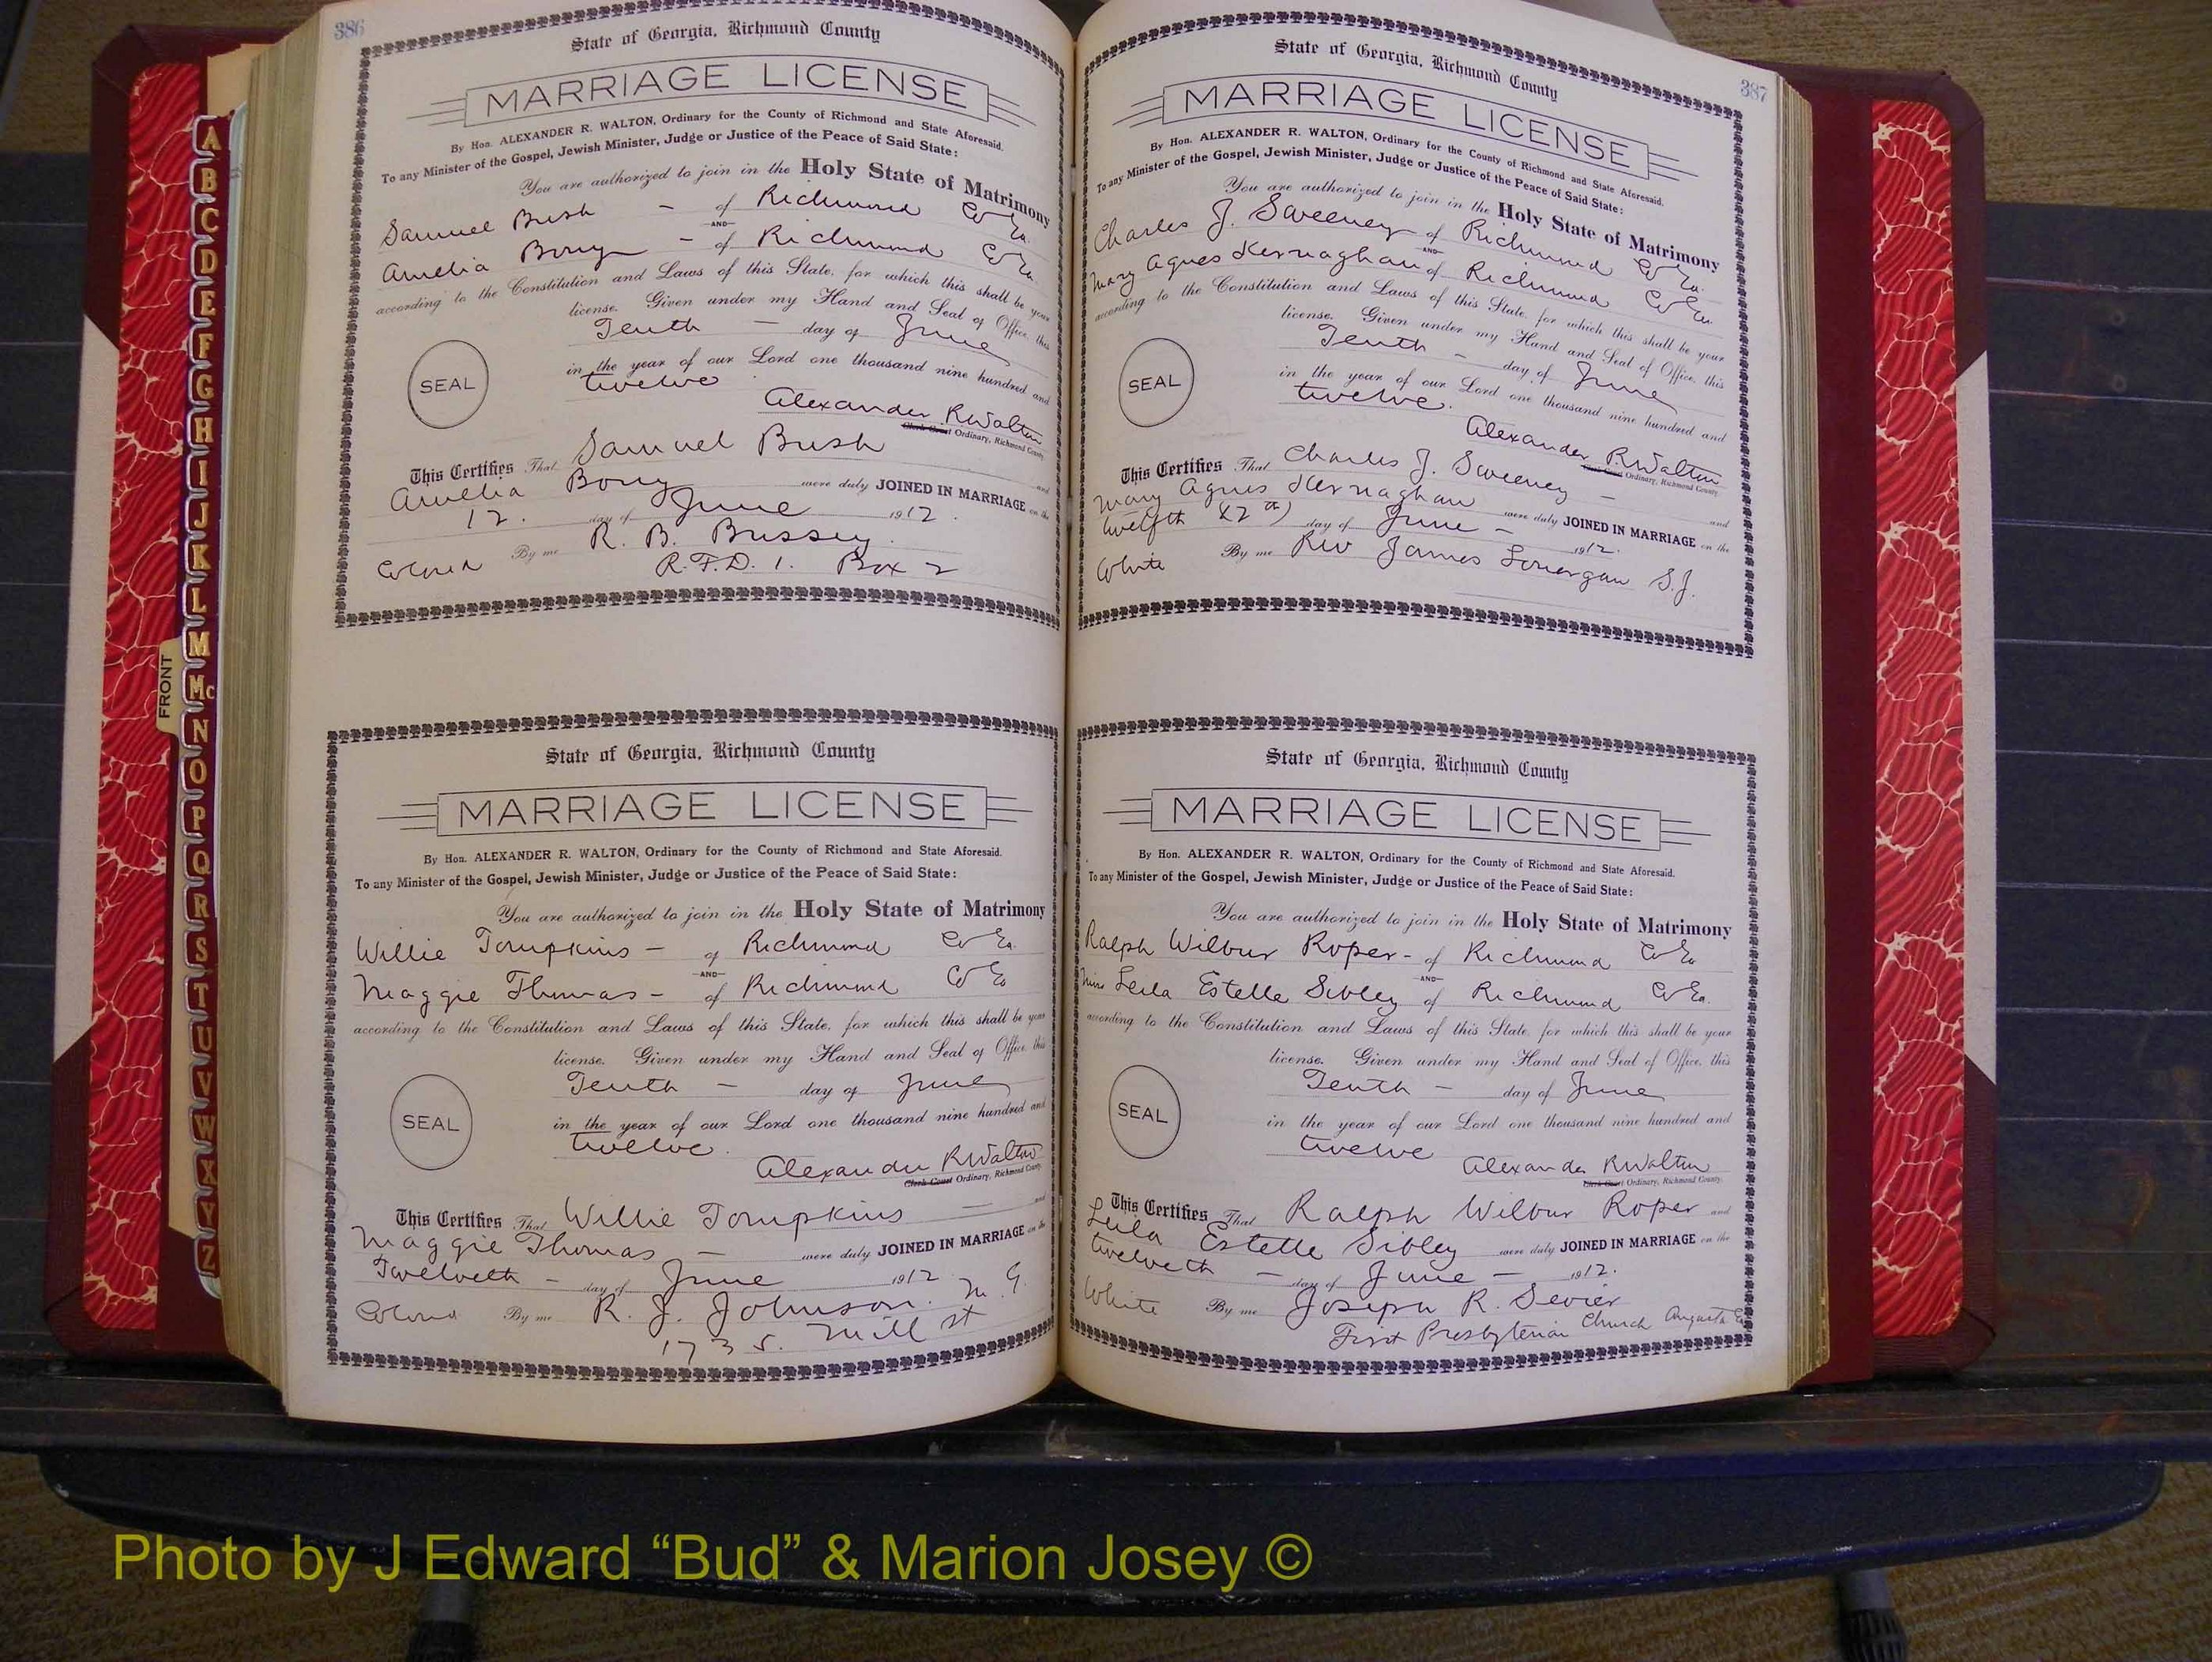 386
State of Georgia, Richmond County
MARRIAGE LICENSE
By Hon. ALEXANDER R. WALTON, Ordinary for the County of Richmond and State Aforesaid.
To any Minister of the Gospel, Jewish Minister, Judge or Justice of the Peace of Said State:
You are authorized to join in the Holy State of Matrimony
Samuel Bush - of Richmond Co Ga.
AND
Amelia - of Richmond Co Ga.
according to the Constitution and Laws of this State, for which this shall be your
license. Given under my Hand and Seal of Office, this
Tenth - day of June
in the year of our Lord one thousand nine hundred and
twelve
SEAL
Alexander R Walton
Clerk Court Ordinary, Richmond County
This Certifies That Samuel Bush and
Amelia were duly JOINED IN MARRIAGE on the
12. day of June 1912.
Colored By me R. B. Bussey.
R.F.D. 1. Box 2
State of Georgia, Richmond County
MARRIAGE LICENSE
By Hon. ALEXANDER R. WALTON, Ordinary for the County of Richmond and State Aforesaid.
To any Minister of the Gospel, Jewish Minister, Judge or Justice of the Peace of Said State:
You are authorized to join in the Holy State of Matrimony
Willie Tompkins - of Richmond Co Ga.
AND
Maggie Thomas - of Richmond Co Ga
according to the Constitution and Laws of this State, for which this shall be your
license. Given under my Hand and Seal of Office, this
Tenth - day of June
in the year of our Lord one thousand nine hundred and
twelve.
SEAL
Alexander R Walton
Clerk Court Ordinary, Richmond County
This Certifies That Willie Tompkins - and
Maggie Thomas - were duly JOINED IN MARRIAGE on the
Twelveth - day of June 1912
Colored By me R. J. Johnson. M. G.
1735. Mill st
387
State of Georgia, Richmond County
MARRIAGE LICENSE
By Hon. ALEXANDER R. WALTON, Ordinary for the County of Richmond and State Aforesaid.
To any Minister of the Gospel, Jewish Minister, Judge or Justice of the Peace of Said State:
You are authorized to join in the Holy State of Matrimony
Charles J. Sweeney of Richmond Co Ga.
AND
Mary Agnes Kernaghan of Richmond Co Ga.
according to the Constitution and Laws of this State, for which this shall be your
license. Given under my Hand and Seal of Office, this
Tenth - day of June
in the year of our Lord one thousand nine hundred and
twelve.
SEAL
Alexander R. Walton
Clerk Court Ordinary, Richmond County
This Certifies That Charles J. Sweeney - and
Mary Agnes Kernaghan were duly JOINED IN MARRIAGE on the
twelfth day of June - 1912.
White By me Rev James Lonergan S.J.
State of Georgia, Richmond County
MARRIAGE LICENSE
By Hon. ALEXANDER R. WALTON, Ordinary for the County of Richmond and State Aforesaid.
To any Minister of the Gospel, Jewish Minister, Judge or Justice of the Peace of Said State:
You are authorized to join in the Holy State of Matrimony
Ralph Wilbur Roper - of Richmond Co Ga
AND
Miss Leila Estelle Sibley of Richmond Co Ga.
according to the Constitution and Laws of this State, for which this shall be your
license. Given under my Hand and Seal of Office, this
Tenth - day of June
in the year of our Lord one thousand nine hundred and
twelve
SEAL
Alexander R Walton
Clerk Court Ordinary, Richmond County
This Certifies That Ralph Wilbur Roper and
Leila Estelle Sibley were duly JOINED IN MARRIAGE on the
twelveth - day of June - 1912.
White By me Joseph R. Sevier
First Presbyterian Church Augusta Ga
A
B
C
D
E
F
G
H
I
J
K
L
M
Mc
N
O
P
Q
R
S
T
U
V
W
X
Y
Z
FRONT
Photo by J Edward “Bud” & Marion Josey ©